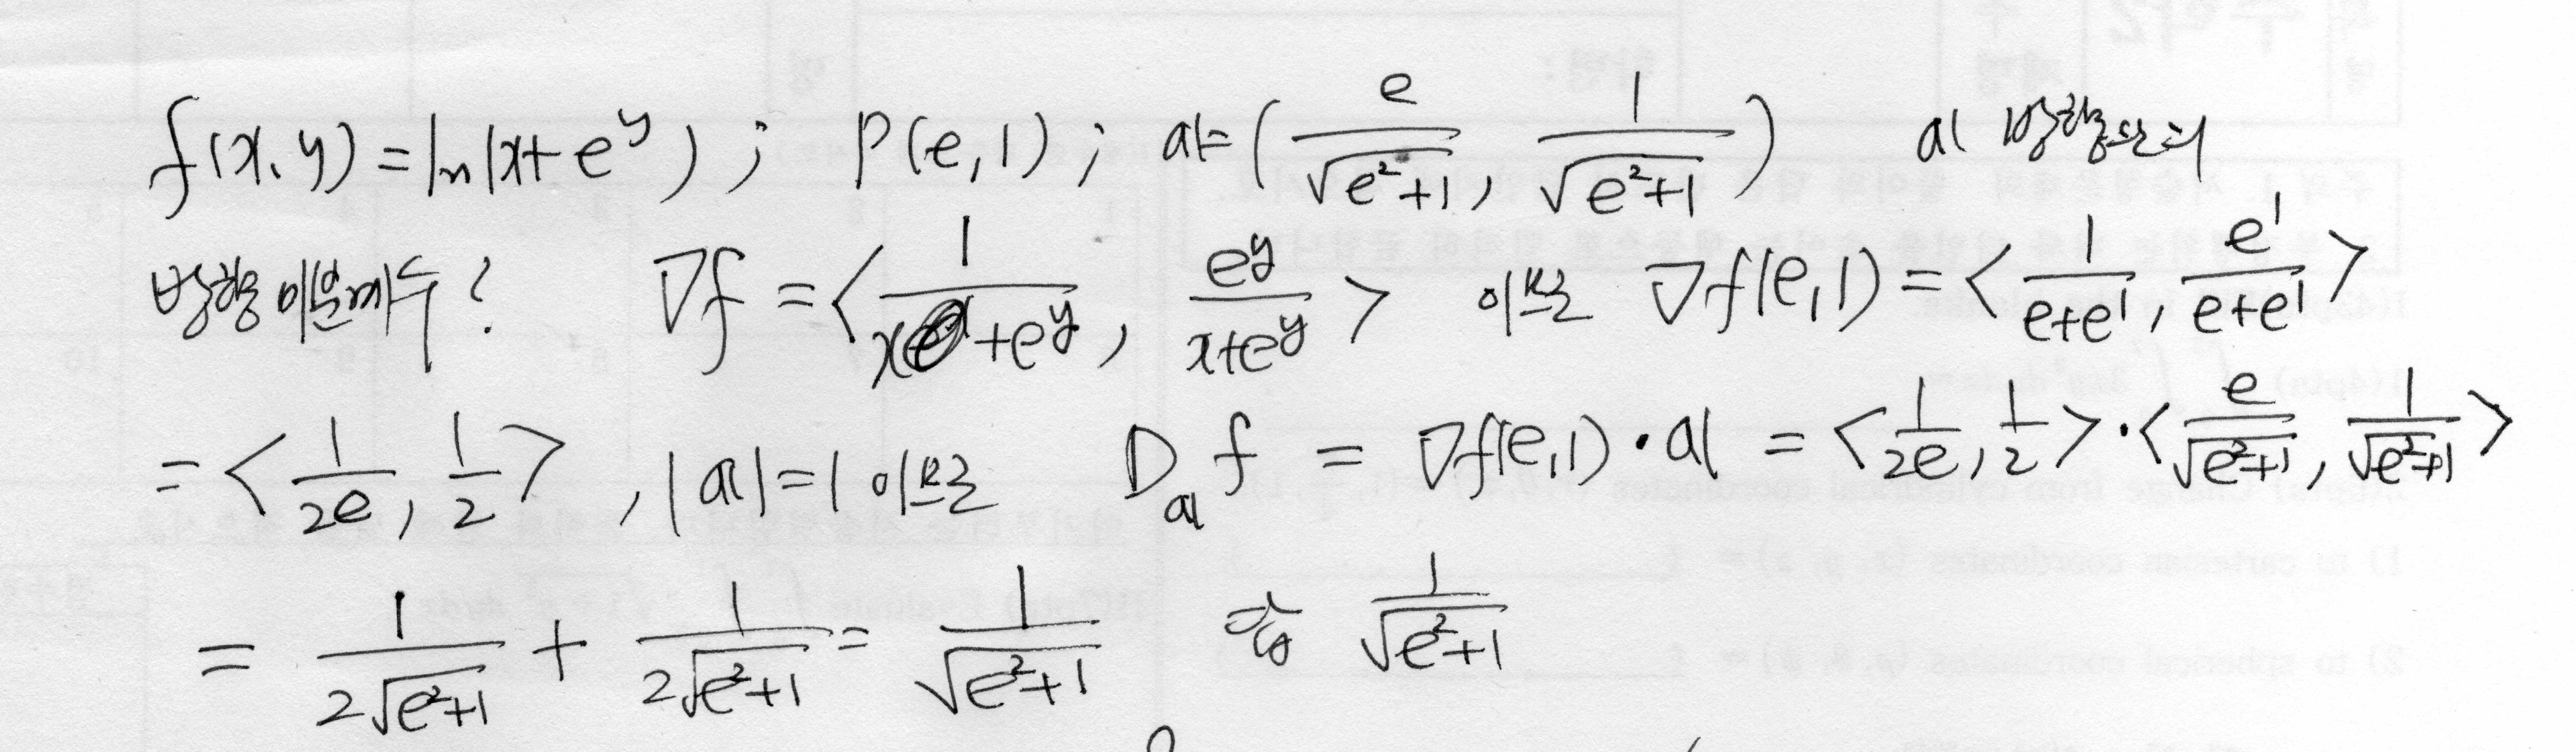 f(x,y) = ln(x+e^y) ; P(e,1) ; a = (e/√(e²+1), 1/√(e²+1)) a 방향으로의
방향미분계수? ∇f = <1/(x+e^y), e^y/(x+e^y)> 이므로 ∇f(e,1) = <1/(e+e^1), e^1/(e+e^1)>
= <1/(2e), 1/2>, |a|=1 이므로 D_a f = ∇f(e,1)·a = <1/(2e), 1/2>·<e/√(e²+1), 1/√(e²+1)>
= 1/(2√(e²+1)) + 1/(2√(e²+1)) = 1/√(e²+1) 답 1/√(e²+1)